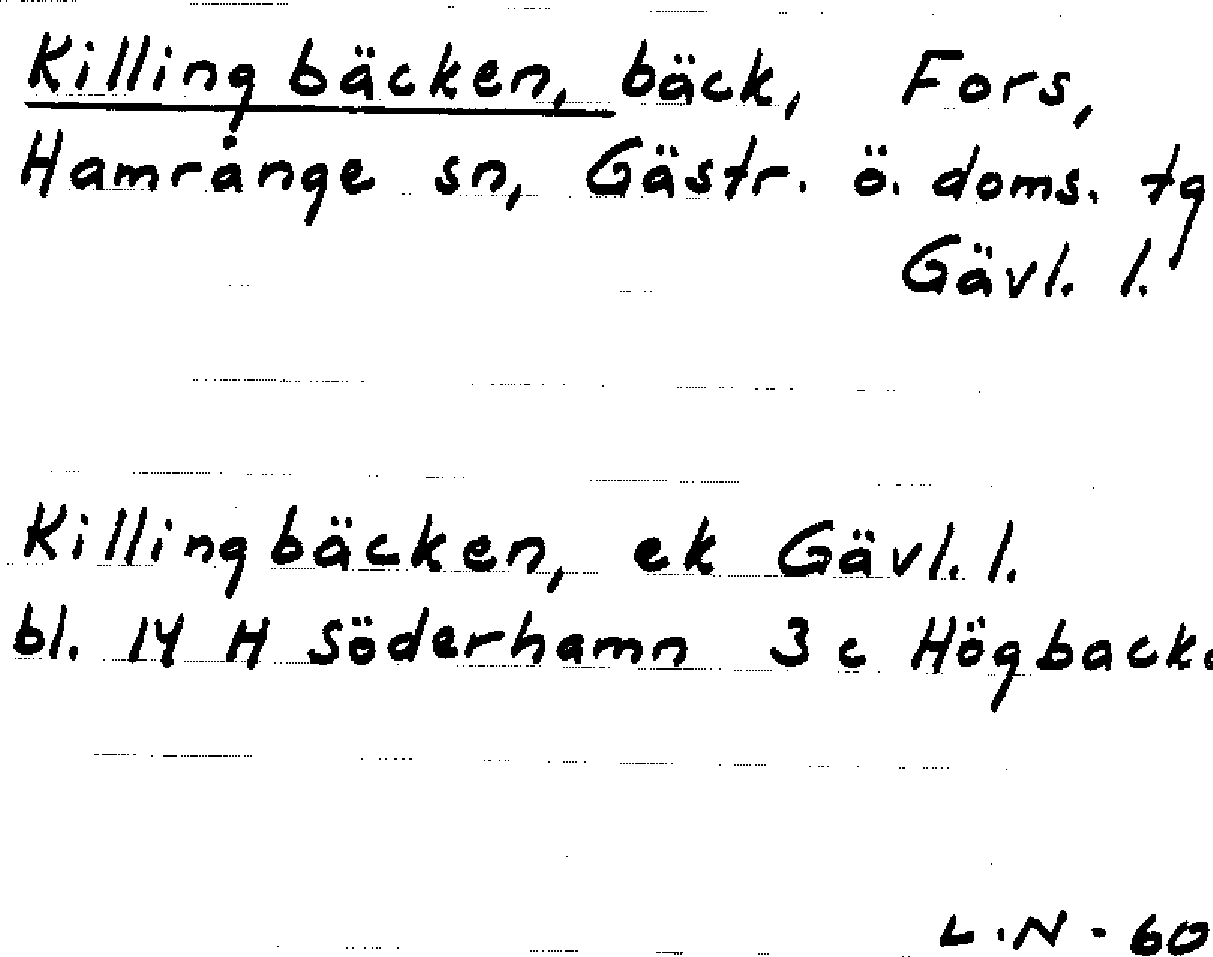 Killingbäcken, bäck, Fors,
Hamrånge sn, Gästr. ö. doms. tg
Gävl. l.
Killingbäcken, ek Gävl. l.
bl. 14 H Söderhamn 3 c Högback
L.N - 60